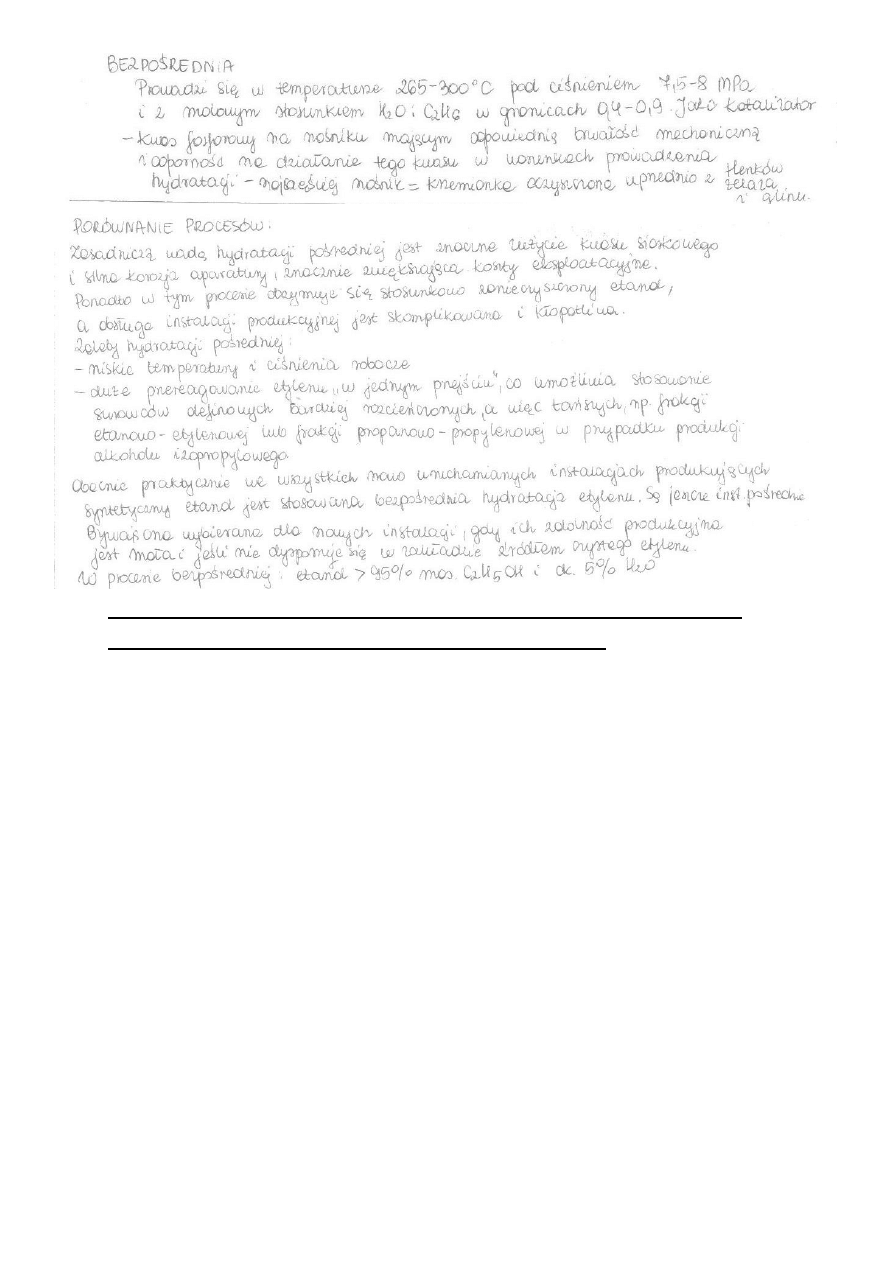 BEZPOŚREDNIA
Prowadzi się w temperaturze 265-300°C pod ciśnieniem 7,5-8 MPa
i z molowym stosunkiem H2O : C2H4 w granicach 0,4-0,9. Jako katalizator
- kwas fosforowy na nośniku mającym odpowiednią trwałość mechaniczną
i odporność na działanie tego kwasu w warunkach prowadzenia
hydratacji - najczęściej nośnik = krzemionka oczyszczona uprzednio z tlenków
żelaza
i glinu.
PORÓWNANIE PROCESÓW:
Zasadniczą wadą hydratacji pośredniej jest znaczne zużycie kwasu siarkowego
i silna korozja aparatury, znacznie zwiększająca koszty eksploatacyjne.
Ponadto w tym procesie otrzymuje się stosunkowo zanieczyszczony etanol,
a obsługa instalacji produkcyjnej jest skomplikowana i kłopotliwa.
Zalety hydratacji pośredniej:
- niskie temperatury i ciśnienia robocze
- duże przereagowanie etylenu „w jednym przejściu", co umożliwia stosowanie
surowców olefinowych bardziej rozcieńczonych, a więc tańszych, np. frakcji
etanowo-etylenowej lub frakcji propanowo-propylenowej w przypadku produkcji
alkoholu izopropylowego.
Obecnie praktycznie we wszystkich nowo uruchamianych instalacjach produkujących
syntetyczny etanol jest stosowana bezpośrednia hydratacja etylenu. Są jeszcze inst. pośrednie
Bywają one wybierane dla nowych instalacji, gdy ich zdolność produkcyjna
jest mała i jeśli nie dysponuje się w zakładzie źródłem czystego etylenu.
W procesie bezpośredniej: etanol > 95% mas. C2H5OH i ok. 5% H2O